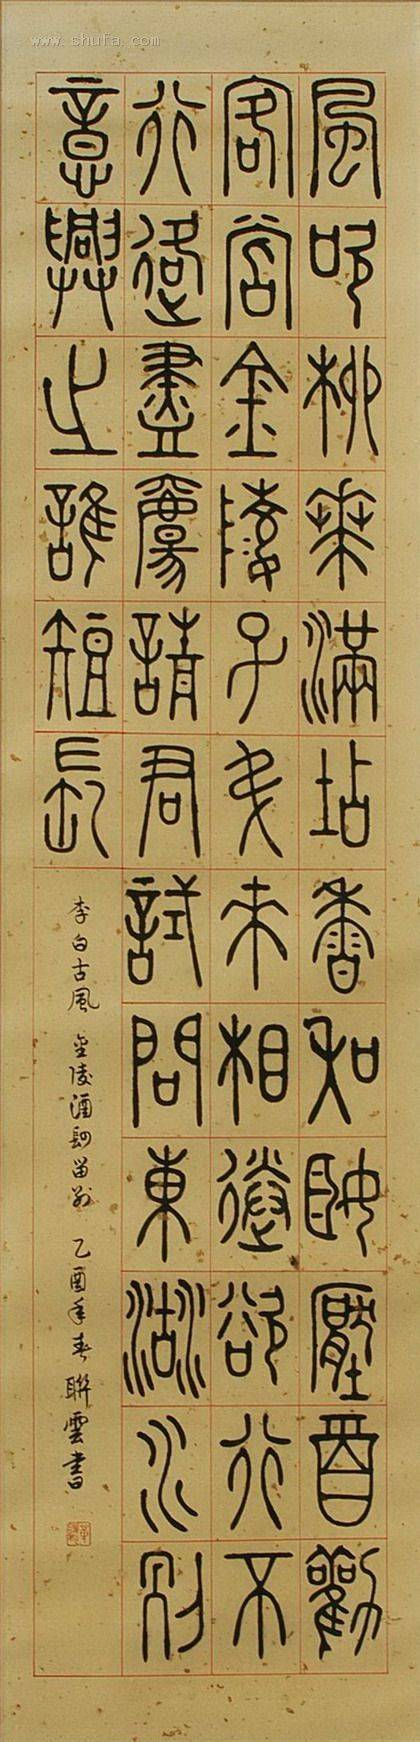 www.shufa.com
風吹柳花滿坫香吳姬壓酉勸
客嘗金陵子弟來相送欲行不
行各盡觴請君試問東流水別
意與之誰短長
李白古風 金陵酒肆留別 乙酉年春 聯雲書